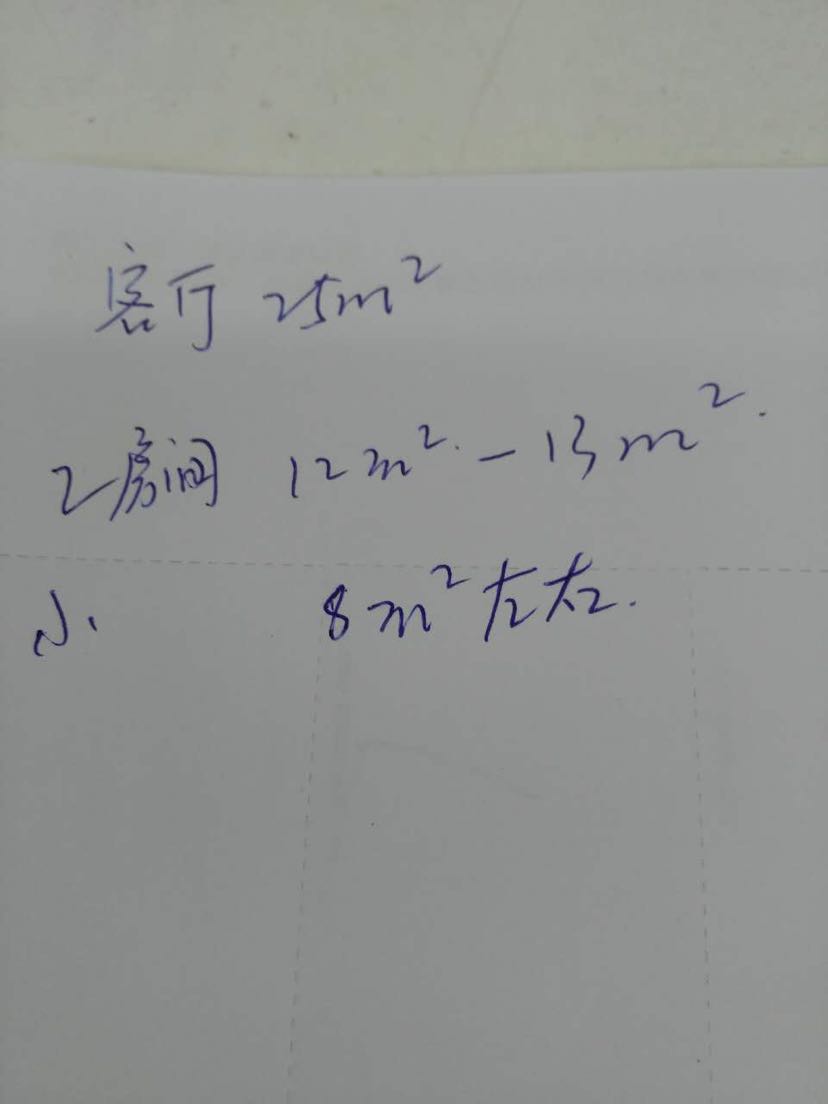 客厅 25m²
2房间 12m² - 13m².
小 8m²左右.